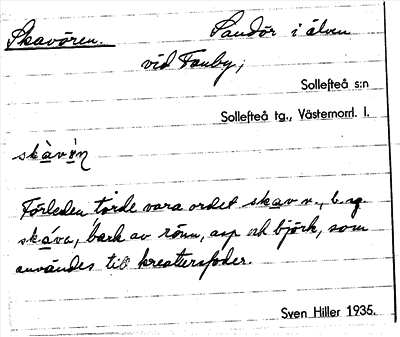 Skavören. Sandör i älven
vid Tanby;
Sollefteå s:n
Sollefteå tg., Västernorrl. l.
skàv·ö̀n
Förleden torde vara ordet skav n., b. sg.
skáva, bark av rönn, asp och björk, som
användes till kreatursfoder.
Sven Hiller 1935.